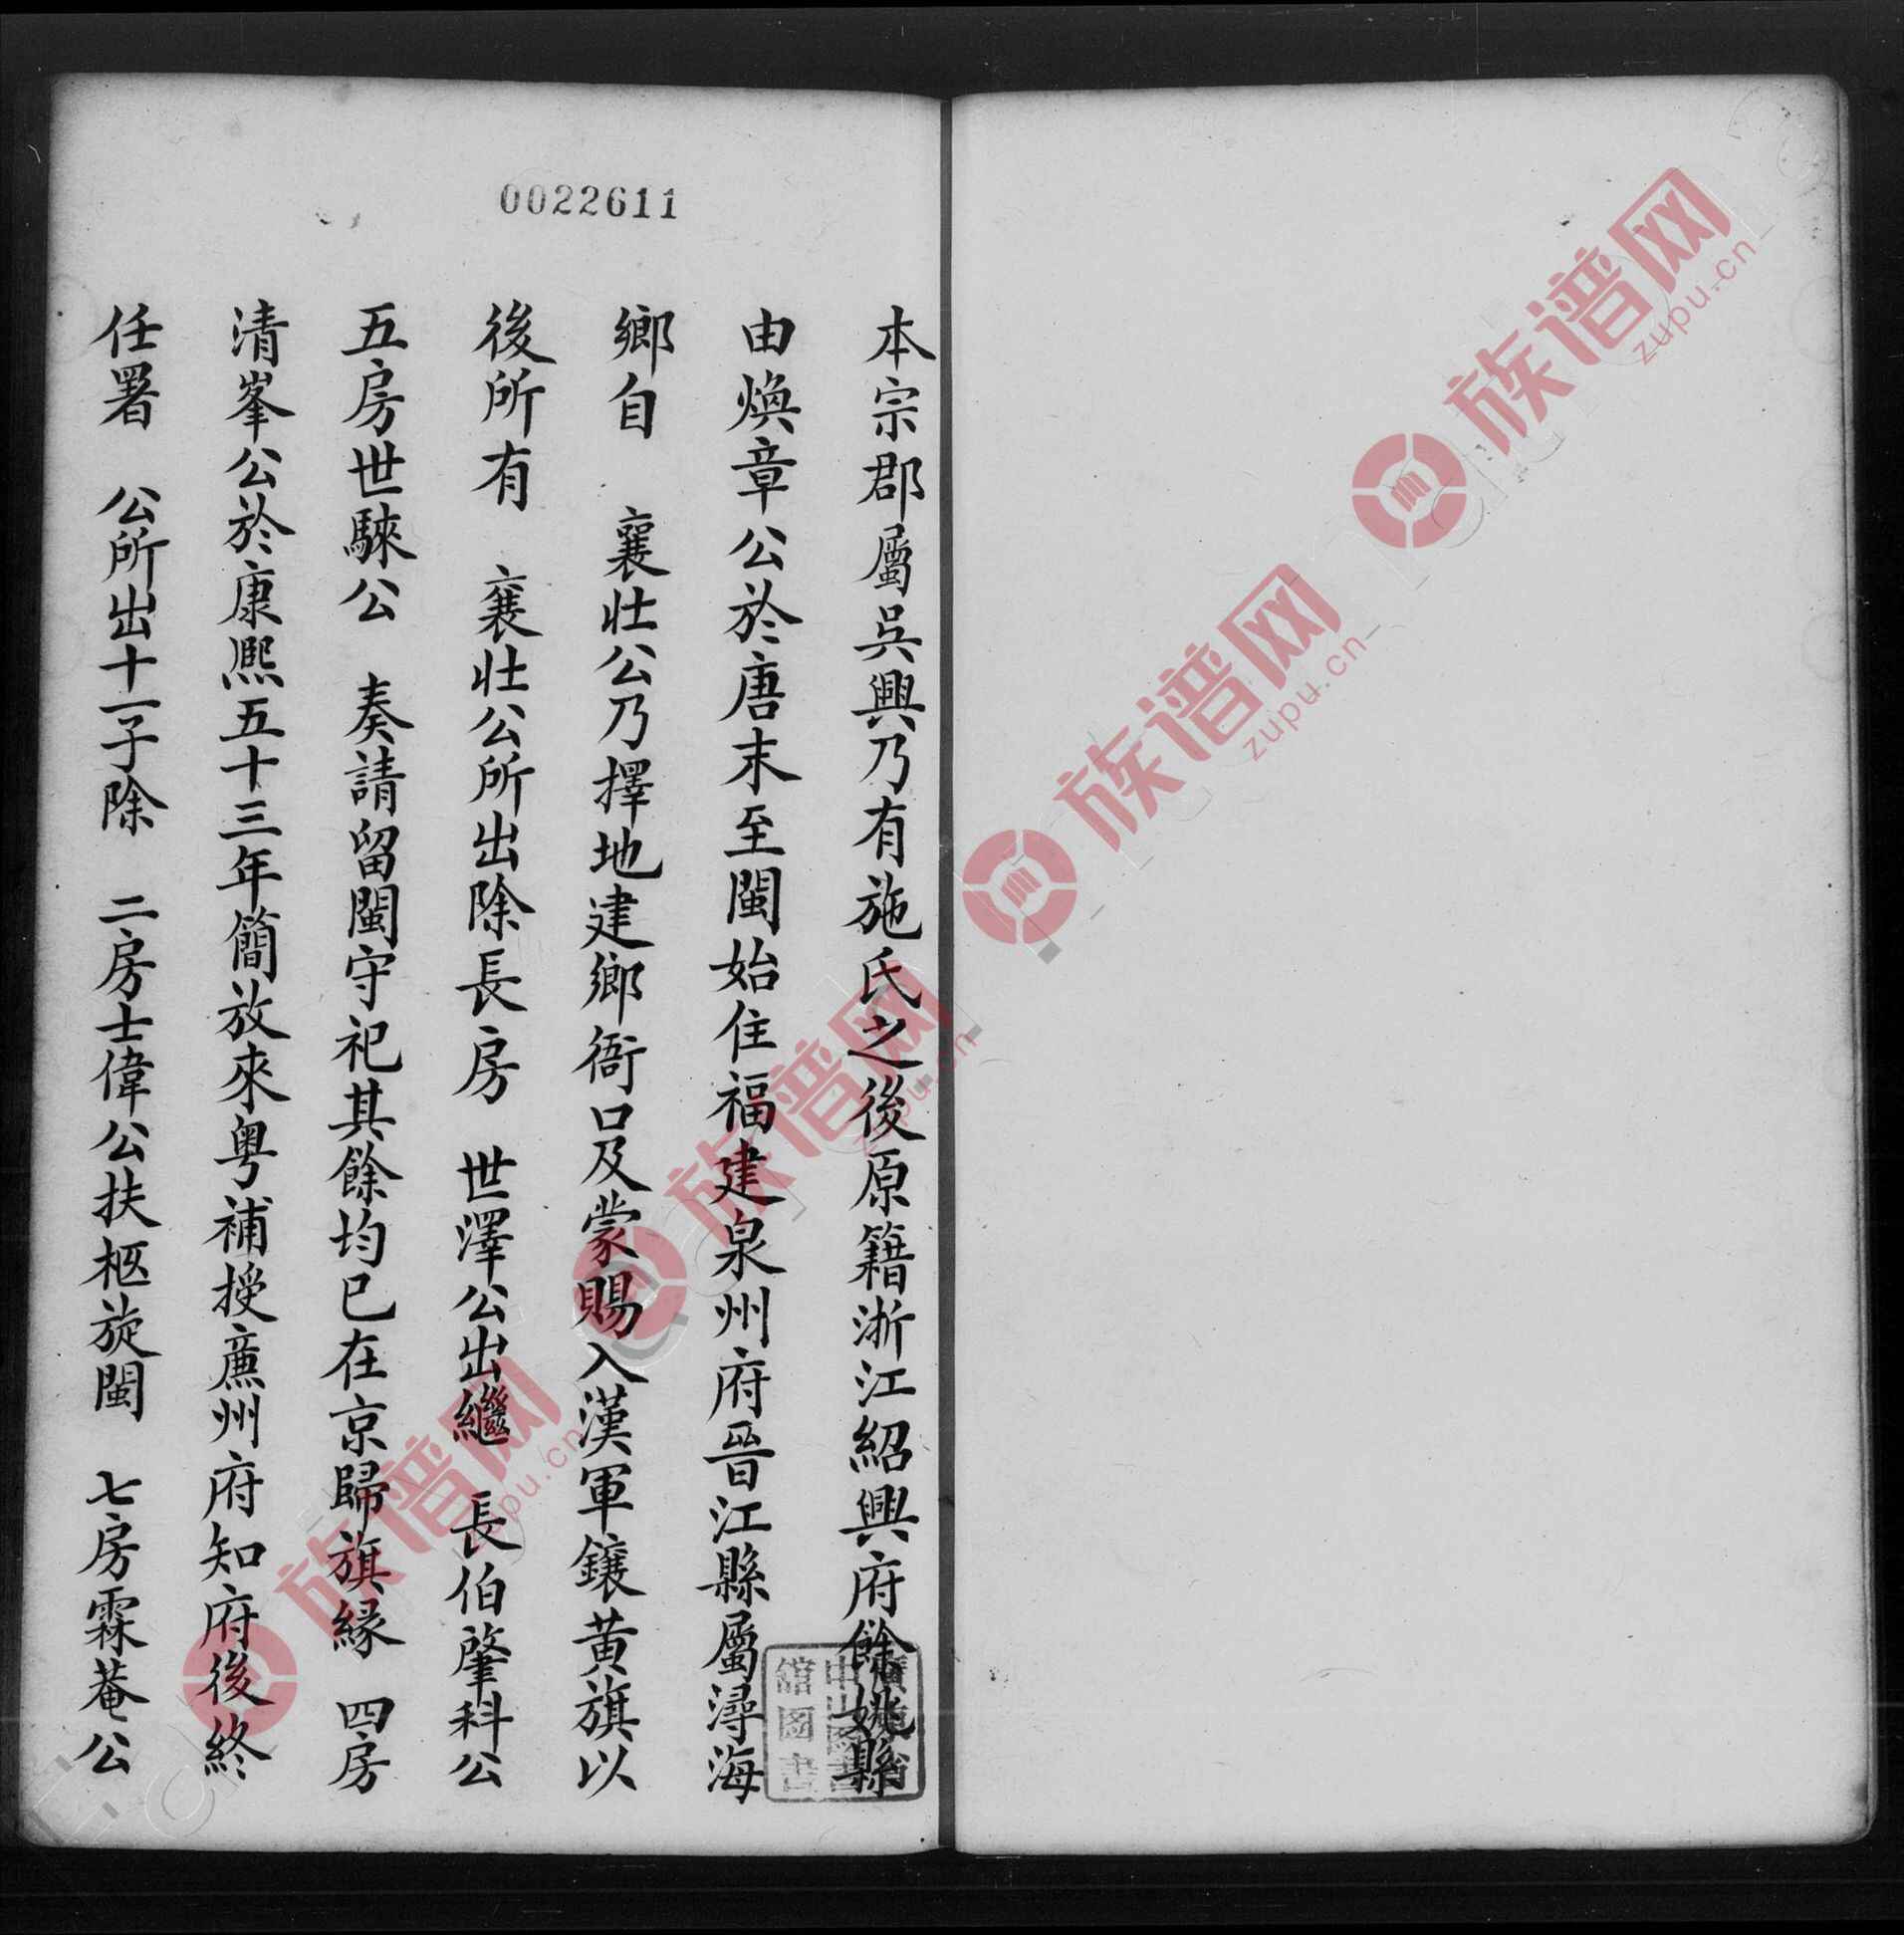 0022611
本宗郡屬吳興乃有施氏之後原籍浙江紹興府餘姚縣
由煥章公於唐末至閩始住福建泉州府晉江縣屬潯海
鄉自 襄壯公乃擇地建鄉衙口及蒙賜入漢軍鑲黃旗以
後所有 襄壯公所出除長房 世澤公出繼 長伯肇科公
五房世騋公 奏請留閩守祀其餘均已在京歸旗緣 四房
清峯公於康熙五十三年簡放來粵補授廉州府知府後終
任署 公所出十一子除 二房士偉公扶柩旋閩 七房霖菴公
廣東省
中山圖書
館圖書
族谱网
zupu.cn
族谱网
zupu.cn
族谱网
zupu.cn
族谱网
zupu.cn